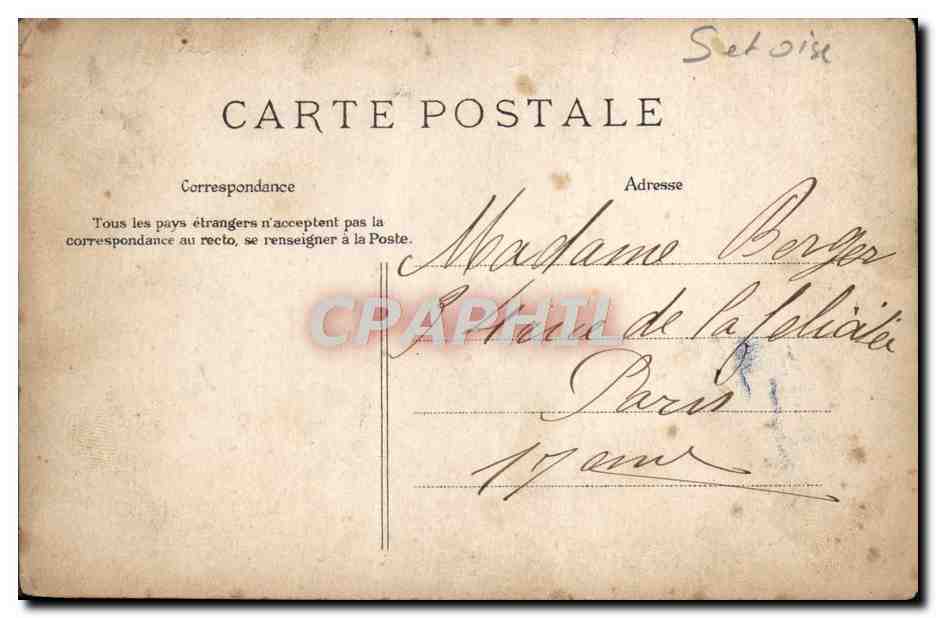 S et oise
CARTE POSTALE
Correspondance
Adresse
Tous les pays étrangers n'acceptent pas la
correspondance au recto, se renseigner à la Poste.
Madame Berger
3 rue de la felicitée
CPAPHIL
Paris
17 eme